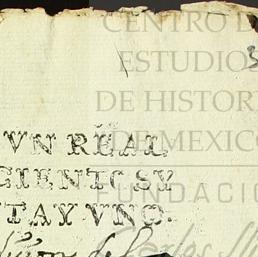 CENTRO D
ESTUDIO
DE HISTOR
DE MEXICO
FUNDACI
VN REAL
CIENTOSY
TAY VNO.
Carlos Sl